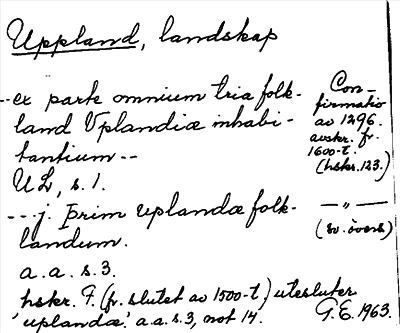 Uppland, landskap
--ex parte omnium tria folk-
land Uplandiæ inhabi-
tantium--
UL, s. 1.
Con-
firmatio
av 1296.
avskr. fr.
1600-t.
(hskr. 123.)
---j. þrim uplandæ folk-
landum.
— " —
(sv. övers)
a.a. s. 3.
hskr. F. (fr. slutet av 1500-t) utesluter
'uplandæ'. a.a. s. 3, not 14.
G.E. 1963.